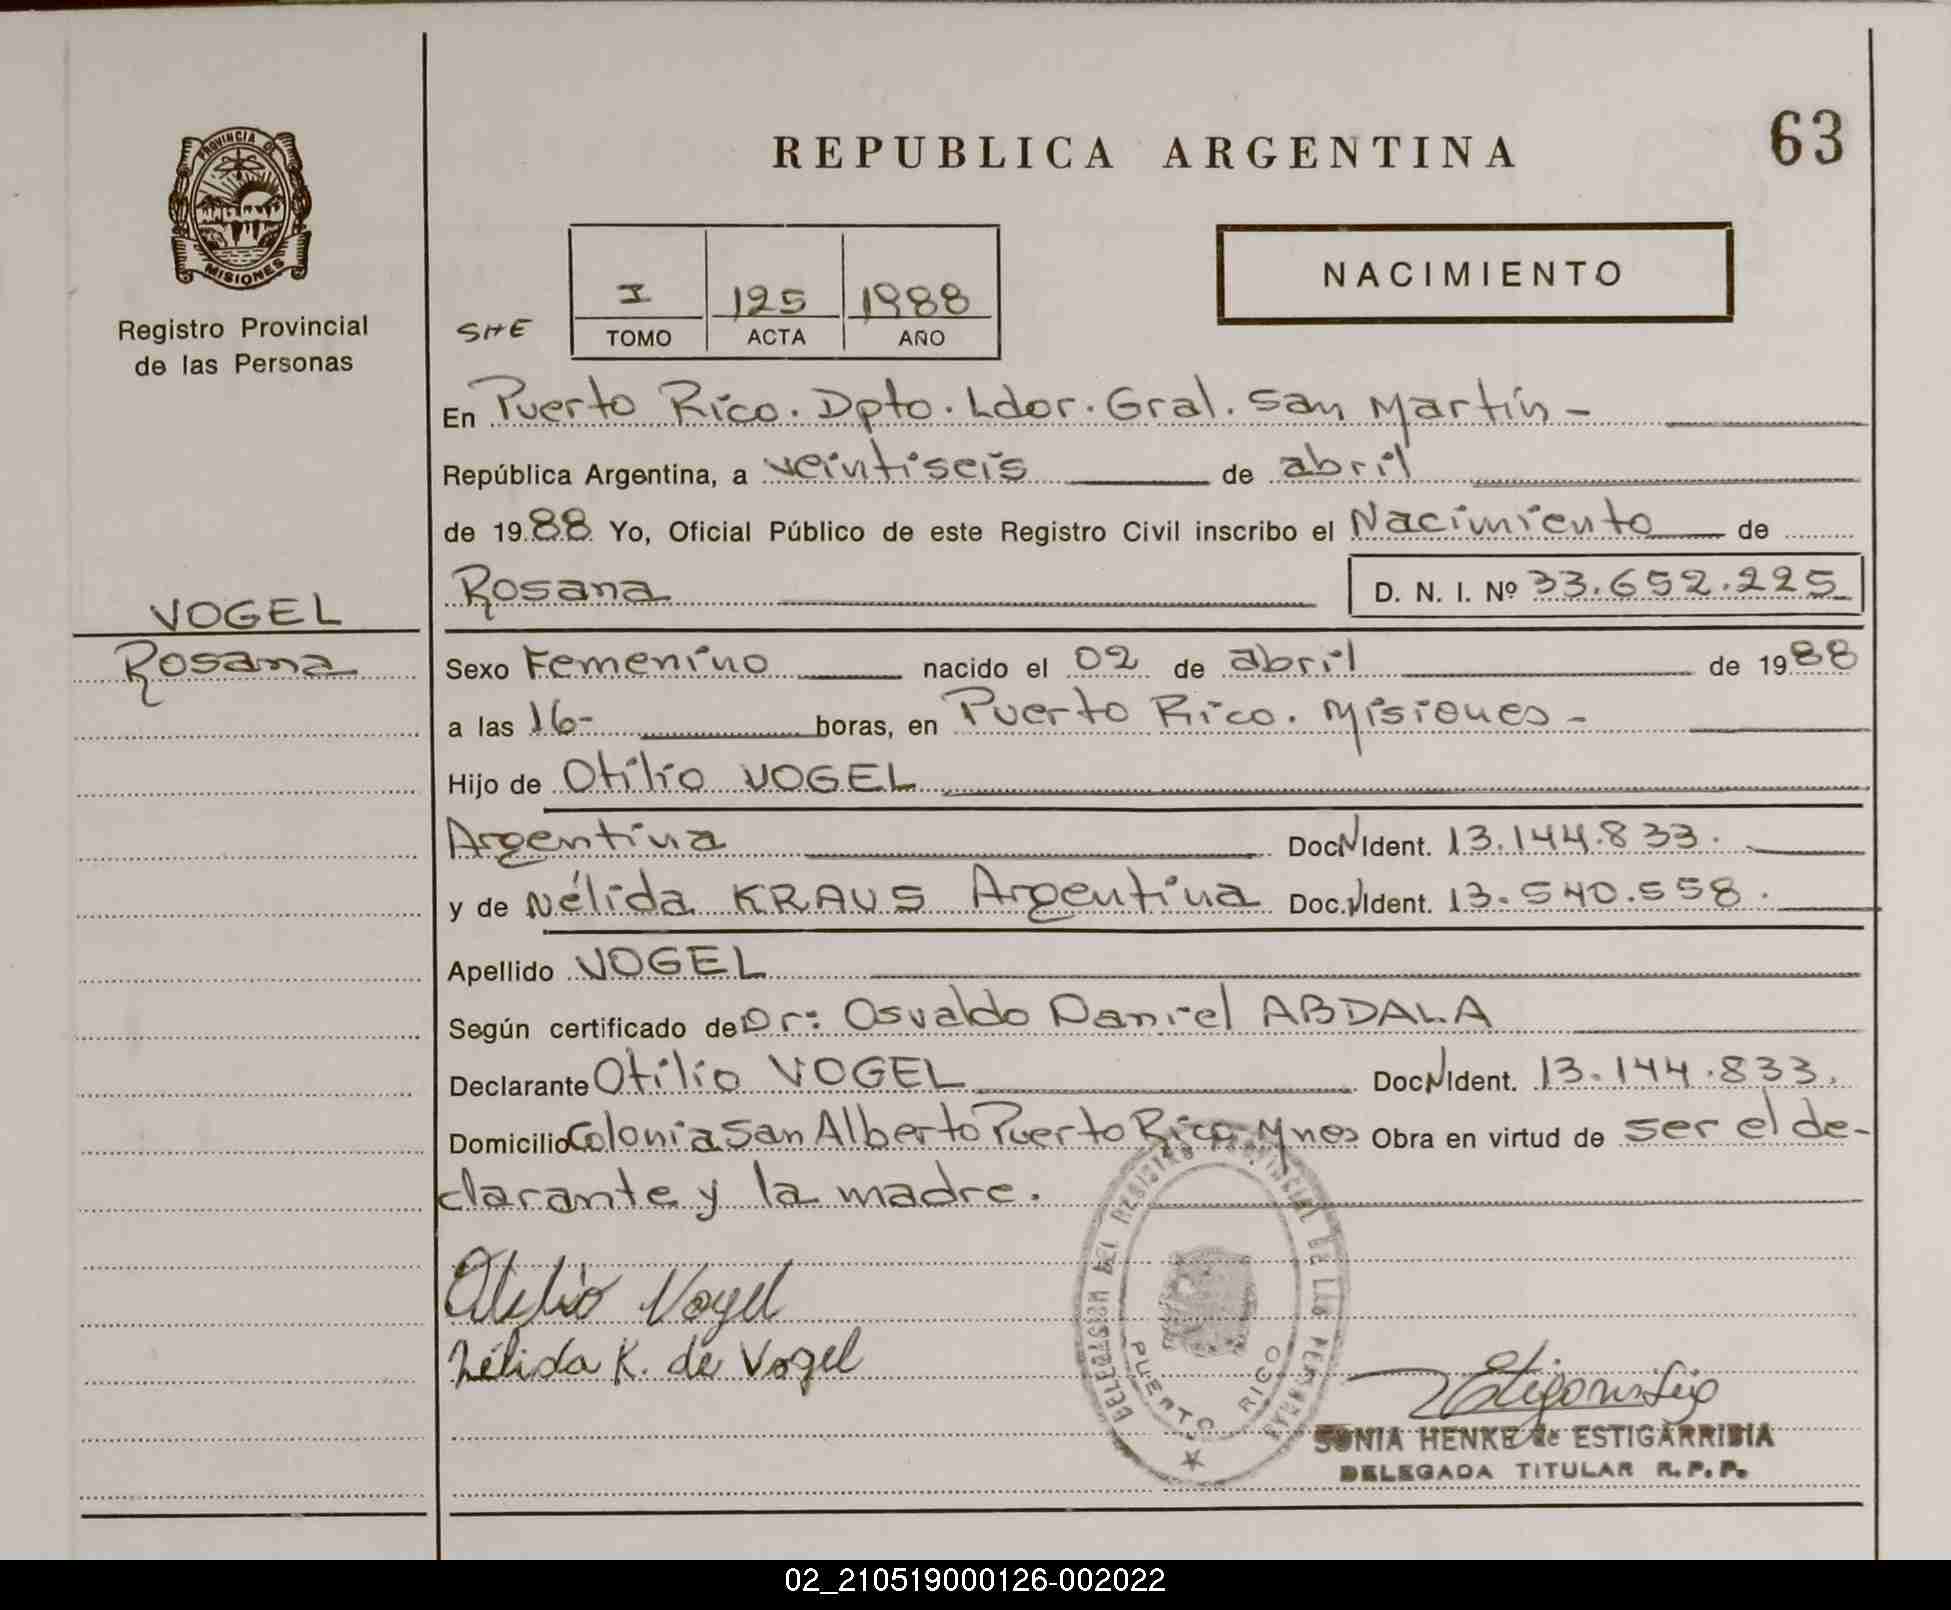 REPUBLICA ARGENTINA
63
PROVINCIA DE
MISIONES
Registro Provincial
de las Personas
NACIMIENTO
I 125 1988
TOMO ACTA AÑO
SHE
En Puerto Rico. Dpto. Ldor. Gral. San Martín -
República Argentina, a veintiseis de abril
de 1988 Yo, Oficial Público de este Registro Civil inscribo el Nacimiento de
Rosana D. N. I. Nº 33.652.225
VOGEL
Rosana
Sexo Femenino nacido el 02 de abril de 1988
a las 16- horas, en Puerto Rico. Misiones -
Hijo de Otilio VOGEL
Argentina Doc.N Ident. 13.144.833.
y de Nélida KRAUS Argentina Doc.N Ident. 13.540.558.
Apellido VOGEL
Según certificado de Dr: Osvaldo Daniel ABDALA
Declarante Otilio VOGEL Doc.N Ident. 13.144.833.
Domicilio Colonia San Alberto Puerto Rico Mnes Obra en virtud de ser el de-
clarante y la madre.
Otilio Vogel
Nélida K. de Vogel
DELEGACION DEL REGISTRO PROVINCIAL DE LAS PERSONAS
PUERTO RICO
SONIA HENKE de ESTIGARRIBIA
DELEGADA TITULAR R.P.P.
02_210519000126-002022